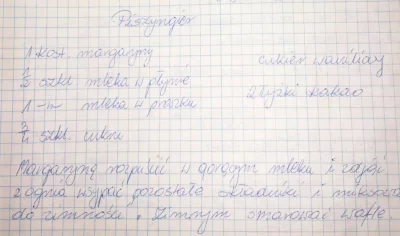 Pischinger
1 kost. margaryny
1/2 szkl. mleka w płynie
cukier waniliowy
1 -"- mleka w proszku
2 łyżki kakao
3/4 szkl. cukru
Margarynę rozpuścić w gorącym mleku i zdjąć
z ognia wsypać pozostałe składniki i miksować
do zimności. Zimnym smarować wafle.